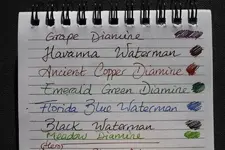 Grape Diamine
Havanna Waterman
Ancient Copper Diamine
Emerald Green Diamine
Florida Blue Waterman
Black Waterman
Meadow Diamine